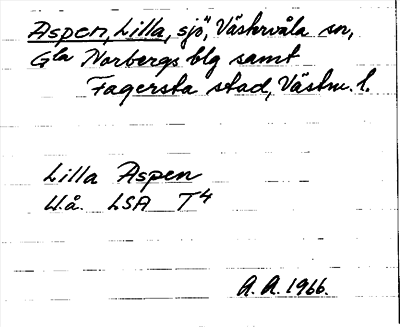 Aspen, Lilla, sjö, Västervåla sn,
Gla Norbergs blg samt
Fagersta stad, Västm. l.
Lilla Aspen
U.å. LSA T4
A.A. 1966.